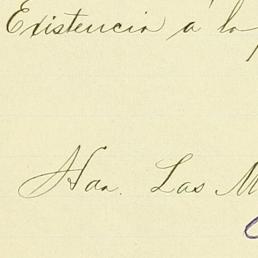 Existencia á la
Hda. Las M